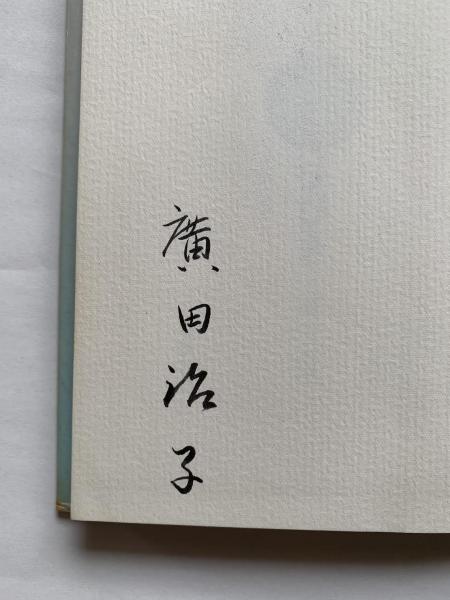 廣田治子